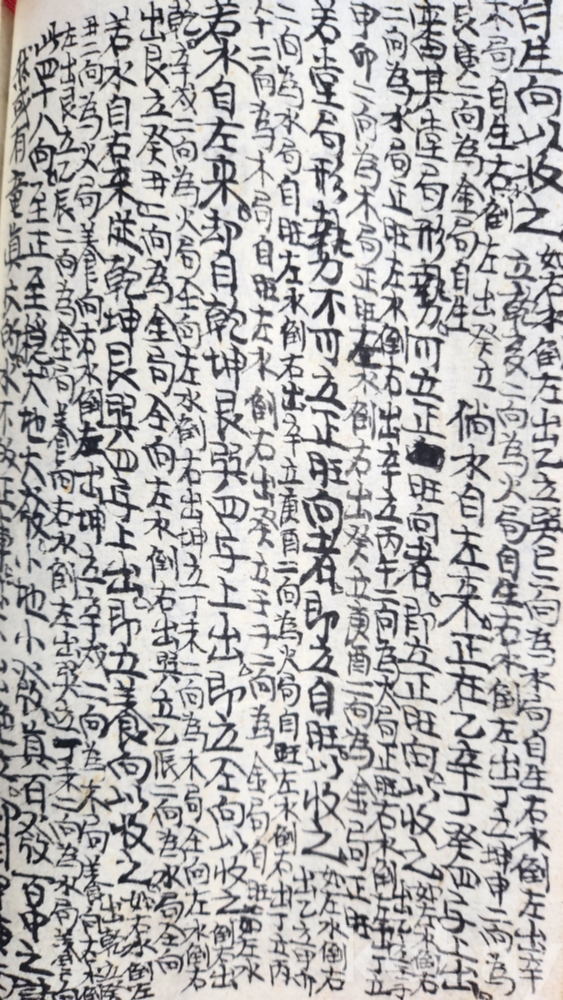 自生向以收之如右水倒左出乙立巽巳二向為水局自生右水倒左出辛
立乾亥二向為火局自生右水倒左出丁立坤申二向為
木局自生右水倒左出癸立
艮寅二向為金局自生
倘水自左來正在乙辛丁癸四字上出
審其堂局形勢可立正旺向者即立正旺向以收之如左水倒右出乙立壬子
二向為水局正旺左水倒右出辛立丙午二向為火局正旺左水倒右出丁立
甲卯二向為木局正旺左水倒右出癸立庚酉二向為金局正旺
若堂局形勢不可立正旺向者即立自旺以收之如左水倒右出乙立甲卯
二向為水局自旺左水倒右出辛立庚酉二向為火局自旺左水倒右出丁立丙
午二向為木局自旺左水倒右出癸立壬子二向為金局自旺
若水自左來却自乾坤艮巽四字上出即立全向以收之如左水倒右出
乾立辛戌二向為火局全向左水倒右出坤立丁未二向為木局全向左水倒右
出艮立癸丑二向為金局全向左水倒右出巽立乙辰二向為水局全向
若水自右來從乾坤艮巽四字上出即立養向以收之如右水倒左出乾立癸
丑二向為火局養向右水倒左出坤立辛戌二向為木局養向右水倒
左出艮立乙辰二向為金局養向右水倒左出巽立丁未二向為水局養向
此四十八向至正至穩大地大發小地小發真百發百中之
然或有